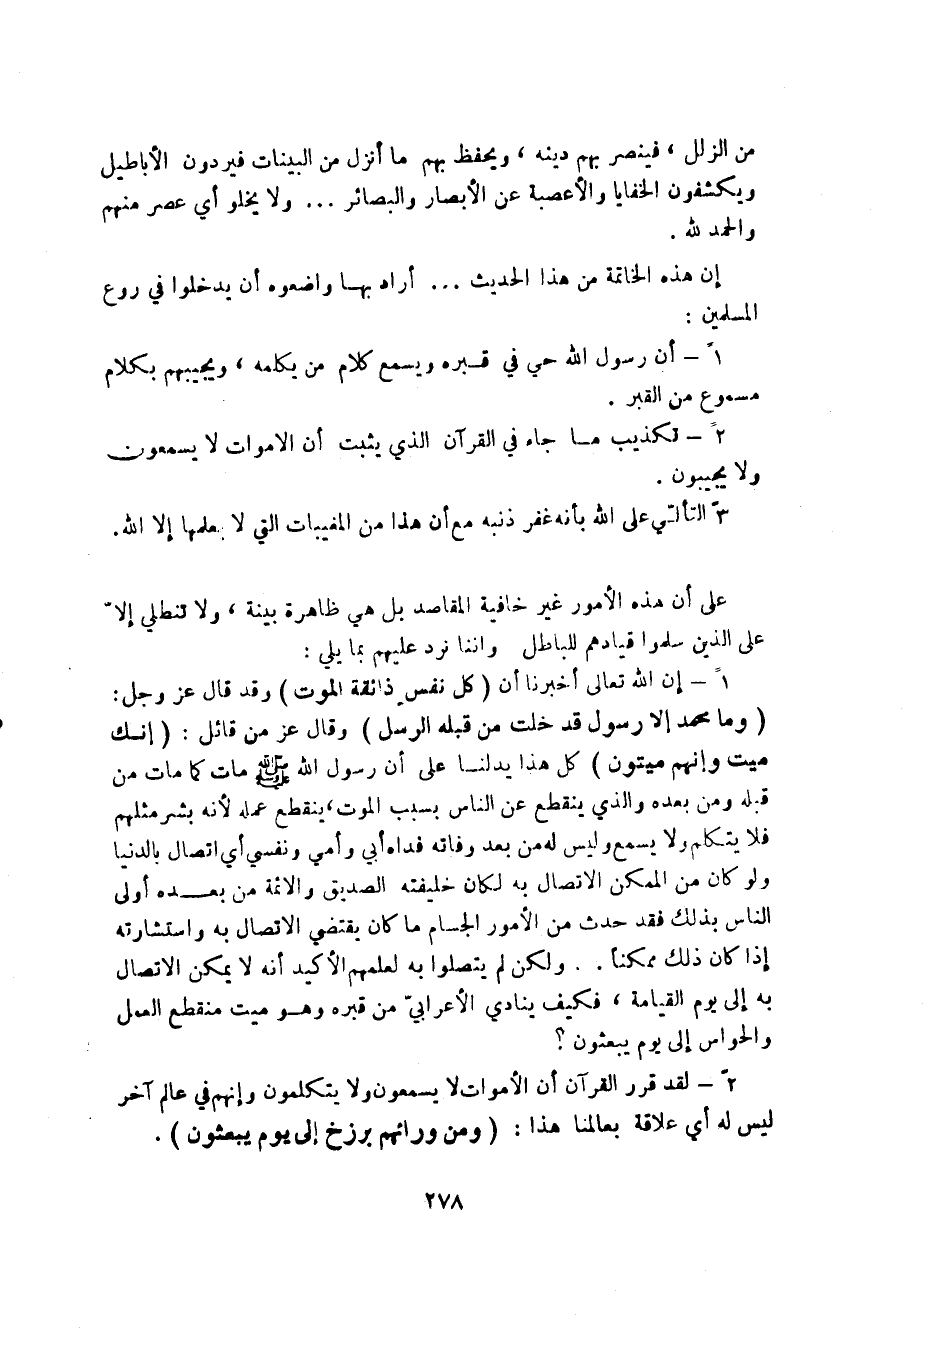 من الزلل ، فينصر بهم دينه ، ويحفظ بهم ما أنزل من البينات فيردون الأباطيل
ويكشفون الخفايا والأعصبة عن الأبصار والبصائر ... ولا يخلو أي عصر منهم
والحمد لله .
إن هذه الخاتمة من هذا الحديث ... أراد بهـا واضعوه أن يدخلوا في روع
المسلمين :
١ً – أن رسول الله حي في قـبره ويسمع كلام من يكلمه ، ويجيبهم بكلام
مسموع من القبر .
٢ً – تكذيب مـا جاء في القرآن الذي يثبت أن الاموات لا يسمعون
ولا يجيبون .
٣ً التألّي على الله بأنه غفر ذنبه مع أن هذا من المغيبات التي لا يعلمها إلا الله.
على أن هذه الأمور غير خافية المقاصد بل هي ظاهرة بينة ، ولا تنطلي إلاّ
على الذين سلموا قيادهم للباطل واننا نرد عليهم بما يلي :
١ً – إن الله تعالى أخبرنا أن ( كل نفس ذائقة الموت ) وقد قال عز وجل :
( وما محمد إلا رسول قد خلت من قبله الرسل ) وقال عز من قائل : ( إنـك
ميت وإنهم ميتون ) كل هذا يدلنـا على أن رسول الله ﷺ مات كما مات من
قبله ومن بعده والذي ينقطع عن الناس بسبب الموت ، ينقطع عمله لأنه بشر مثلهم
فلا يتكلم ولا يسمع وليس له من بعد وفاته فداه أبي وأمي ونفسي أي اتصال بالدنيا
ولو كان من الممكن الاتصال به لكان خليفته الصديق والائمة من بعـــده أولى
الناس بذلك فقد حدث من الأمور الجسام ما كان يقتضي الاتصال به واستشارته
إذا كان ذلك ممكناً . . ولكن لم يتصلوا به لعلمهم الأكيد أنه لا يمكن الاتصال
به إلى يوم القيامة ، فكيف ينادي الأعرابيّ من قبره وهـو ميت منقطع العمل
والحواس إلى يوم يبعثون ؟
٢ً – لقد قرر القرآن أن الأموات لا يسمعون ولا يتكلمون وإنهم في عالم آخر
ليس له أي علاقة بعالمنا هذا : ( ومن ورائهم برزخ إلى يوم يبعثون ) .
٢٧٨